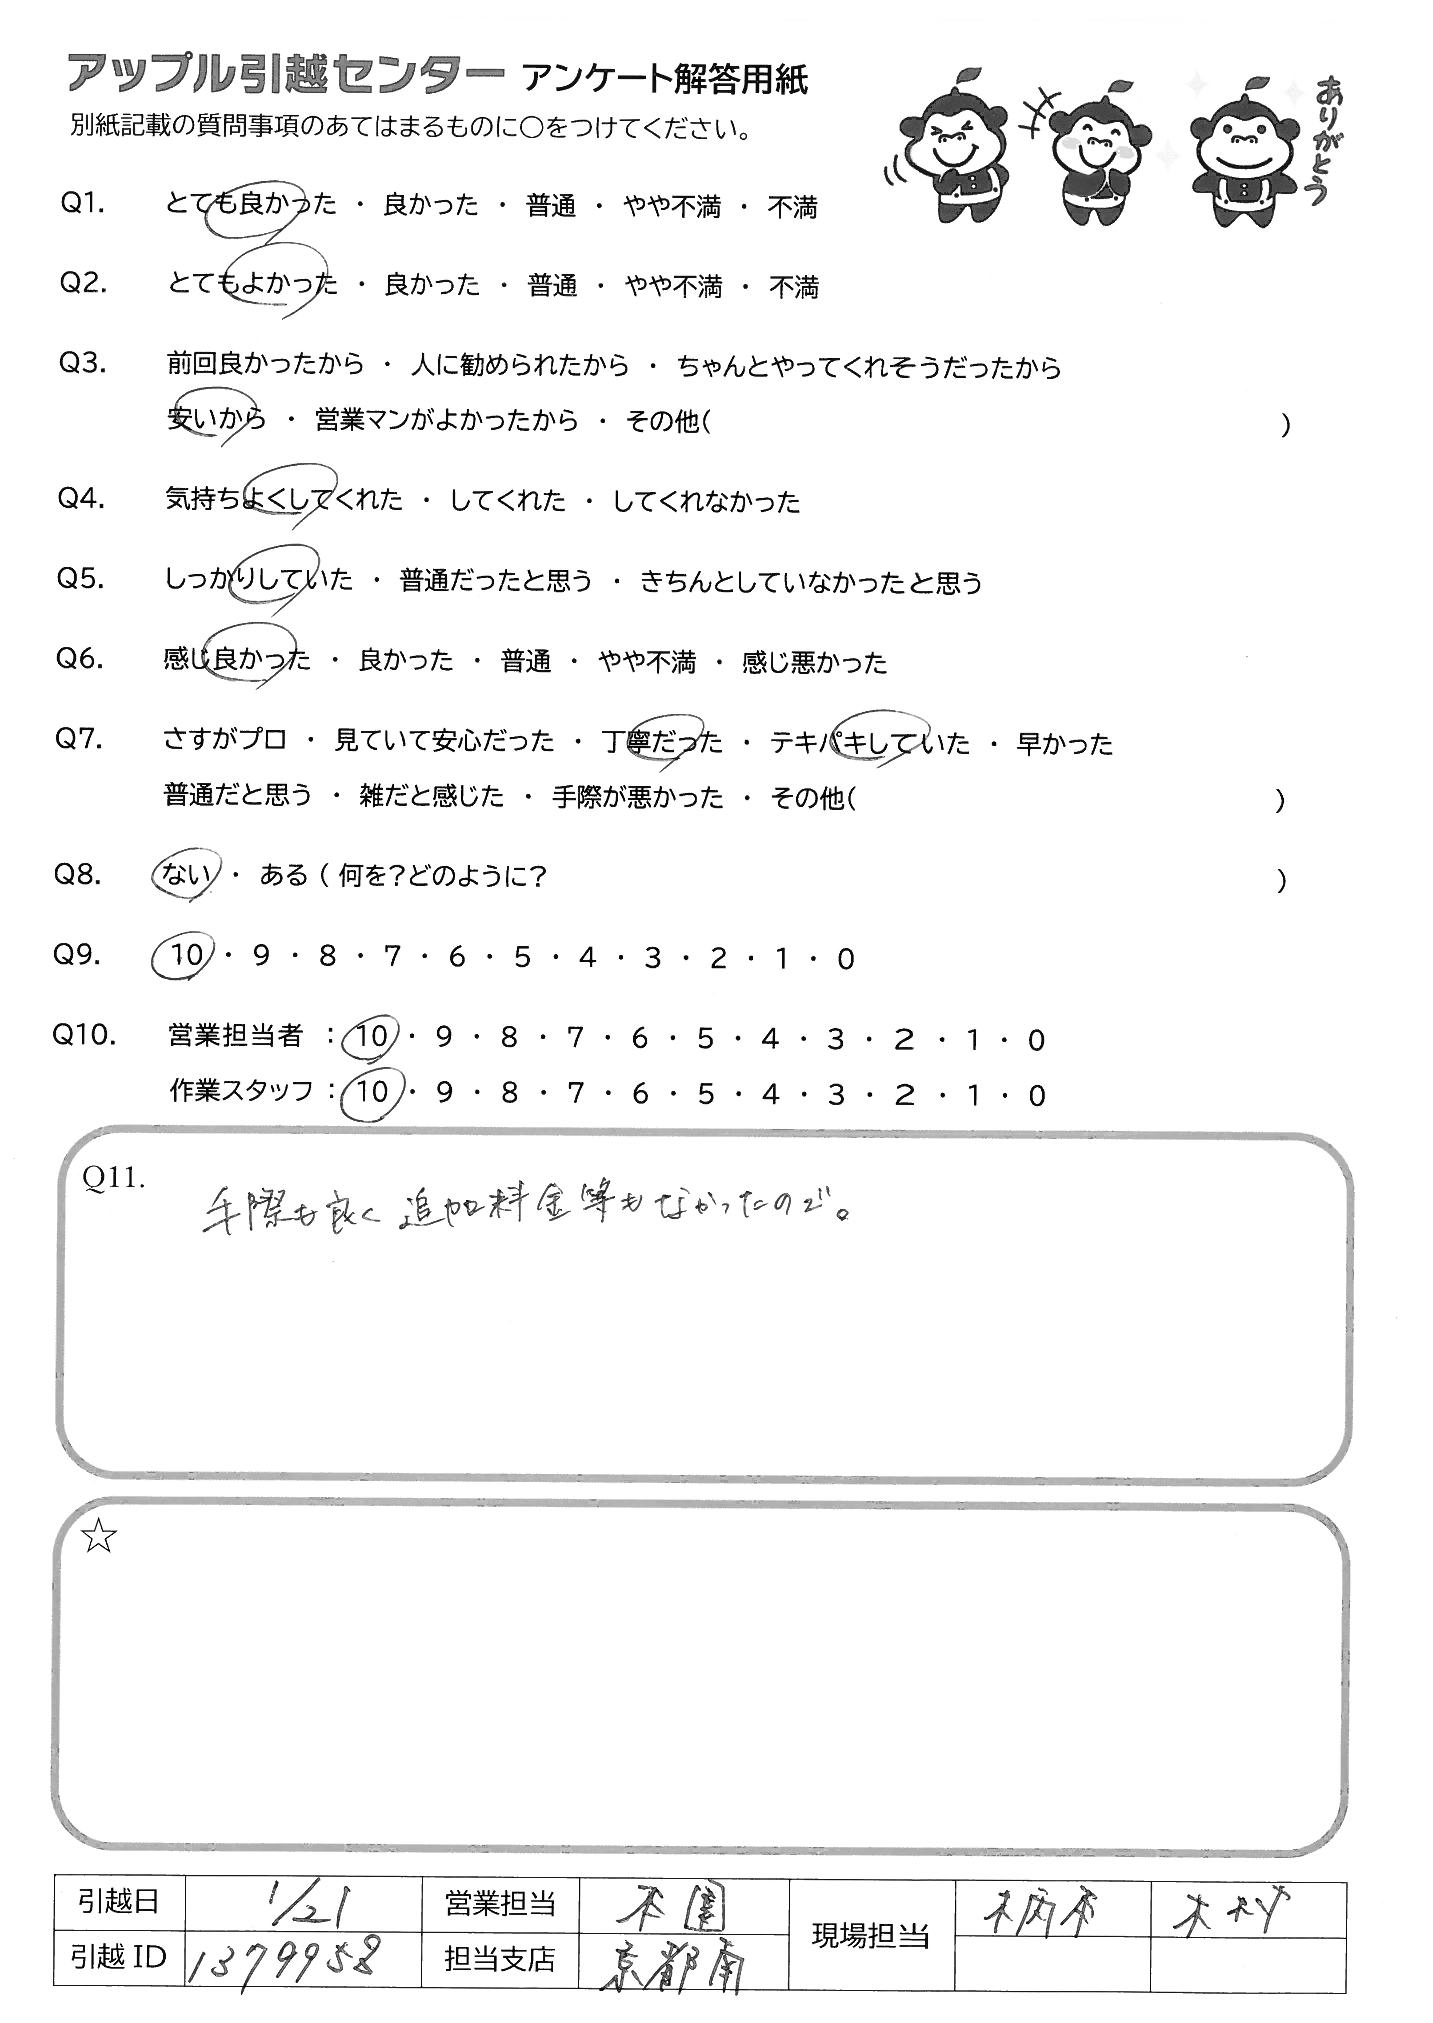 アップル引越センター アンケート解答用紙
別紙記載の質問事項のあてはまるものに○をつけてください。
ありがとう
Q1. とても良かった ・ 良かった ・ 普通 ・ やや不満 ・ 不満
Q2. とてもよかった ・ 良かった ・ 普通 ・ やや不満 ・ 不満
Q3. 前回良かったから ・ 人に勧められたから ・ ちゃんとやってくれそうだったから
安いから ・ 営業マンがよかったから ・ その他( )
Q4. 気持ちよくしてくれた ・ してくれた ・ してくれなかった
Q5. しっかりしていた ・ 普通だったと思う ・ きちんとしていなかったと思う
Q6. 感じ良かった ・ 良かった ・ 普通 ・ やや不満 ・ 感じ悪かった
Q7. さすがプロ ・ 見ていて安心だった ・ 丁寧だった ・ テキパキしていた ・ 早かった
普通だと思う ・ 雑だと感じた ・ 手際が悪かった ・ その他( )
Q8. ない ・ ある ( 何を?どのように? )
Q9. 10 ・ 9 ・ 8 ・ 7 ・ 6 ・ 5 ・ 4 ・ 3 ・ 2 ・ 1 ・ 0
Q10. 営業担当者 : 10 ・ 9 ・ 8 ・ 7 ・ 6 ・ 5 ・ 4 ・ 3 ・ 2 ・ 1 ・ 0
作業スタッフ : 10 ・ 9 ・ 8 ・ 7 ・ 6 ・ 5 ・ 4 ・ 3 ・ 2 ・ 1 ・ 0
Q11.
手際も良く追加料金等もなかったので。
☆
引越日 1/21 営業担当 現場担当 木村
引越ID 1379958 担当支店 京都南